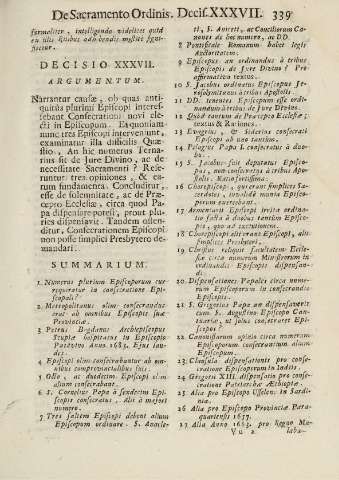 De Sacramento Ordinis. Decis. XXXVII. 339
formaliter, intelligendo videlicet quid
DECISIO XXXVII.
ARGUMENTUM.
Narrantur causæ, ob quas anti-
quitùs plurimi Episcopi interes-
sebant Consecrationi novi ele-
cti in Episcopum. Et quoniam
nunc tres Episcopi interveniunt,
examinatur illa difficilis Quæ-
stio, An hic numerus Terna-
rius sit de Jure Divino, ac de
necessitate Sacramenti? Refe-
runtur tres opiniones, & ea-
rum fundamenta. Concluditur,
esse de solemnitate, ac de Præ-
cepto Ecclesiæ, circa quod Pa-
pa dispensare potest, prout plu-
ries dispensavit. Tandem osten-
ditur, Consecrationem Episcopi
non posse simplici Presbytero de-
mandari.
SUMMARIUM.
1. Numerus plurium Episcoporum cur
requiratur in consecratione Epi-
scopali?
2 Metropolitanus olim consecrandus
erat ab omnibus Episcopis suæ
Provinciæ.
3 Petrus Bogdanus Archiepiscopus
Scupiæ hospitatus in Episcopio
Patavino Anno 1685. Ejus lau-
des.
4 Episcopi olim consecrabantur ab om-
nibus comprovincialibus suis.
5 Octo, ac duodecim Episcopi olim
alium consecrabant.
6 S. Cornelius Papa à sexdecim Epi-
scopis consecratus. Alii à majori
numero.
7 Tres saltem Episcopi debent alium
Episcopum ordinare. S. Anacle-
ti, S. Aniceti, ac Conciliorum Ca-
nones de hoc numero, ac DD.
8 Pontificale Romanum habet legis
Auctoritatem.
9 Episcopus an ordinandus à tribus
Episcopis de Jure Divino? Pro
affirmativa textus.
10 S. Jacobus ordinatus Episcopus Je-
rosolymitanus à tribus Apostolis.
11 DD. tenentes Episcopum esse ordi-
nandum à tribus de Jure Divino.
12 Quòd tantùm de Præcepto Ecclesiæ;
textus & Rationes.
13 Evagrius, & Siderius consecrati
Episcopi ab uno tantùm.
14 Pelagius Papa I. consecratus à duo-
bus.
15 S. Jacobus fuit deputatus Episco-
pus, non consecratus à tribus Apo-
stolis. Ratio
16 Chorepiscopi, qui erant simplices Sa-
cerdotes, invalidè munia Episco-
porum exercebant.
17
facta à duobus tantùm Episco-
pis, quo ad
18 Chorepiscopi aliqui erant Episcopi, alii
simplices Presbyteri.
19 Christus reliquit facultatem Eccle-
siæ circa numerum Ministrorum in
ordinandis Episcopis dispensan-
di.
20 Dispensationes Papales circa nume-
rum Episcoporum in consecrando
Episcopis.
21 S. Gregorius Papa an dispensaverit
cum S. Augustino Episcopo Can-
tuariæ, ut solus consecraret Epi-
scopos?
22 Canonistarum opinio circa numerum
Episcoporum consecrantium alium
Episcopum.
23 Clausula dispensationis pro conse-
cratione Episcoporum in Indiis.
24 Gregorii XIII. dispensatio pro conse-
cratione Patriarchæ Æthiopiæ.
25 Alia pro Episcopo Usellen. in Sardi-
nia.
26 Alia pro Episcopo Provinciæ Para-
quariensis 1657.
27 Alia Anno 1673. pro Regno Ma-
Vu 2 laba-